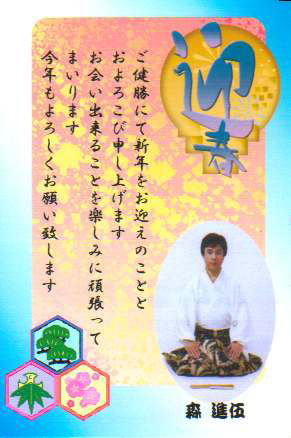 迎春
ご健勝にて新年をお迎えのことと
およろこび申し上げます
お会い出来ることを楽しみに頑張って
まいります
今年もよろしくお願い致します
森 進伍